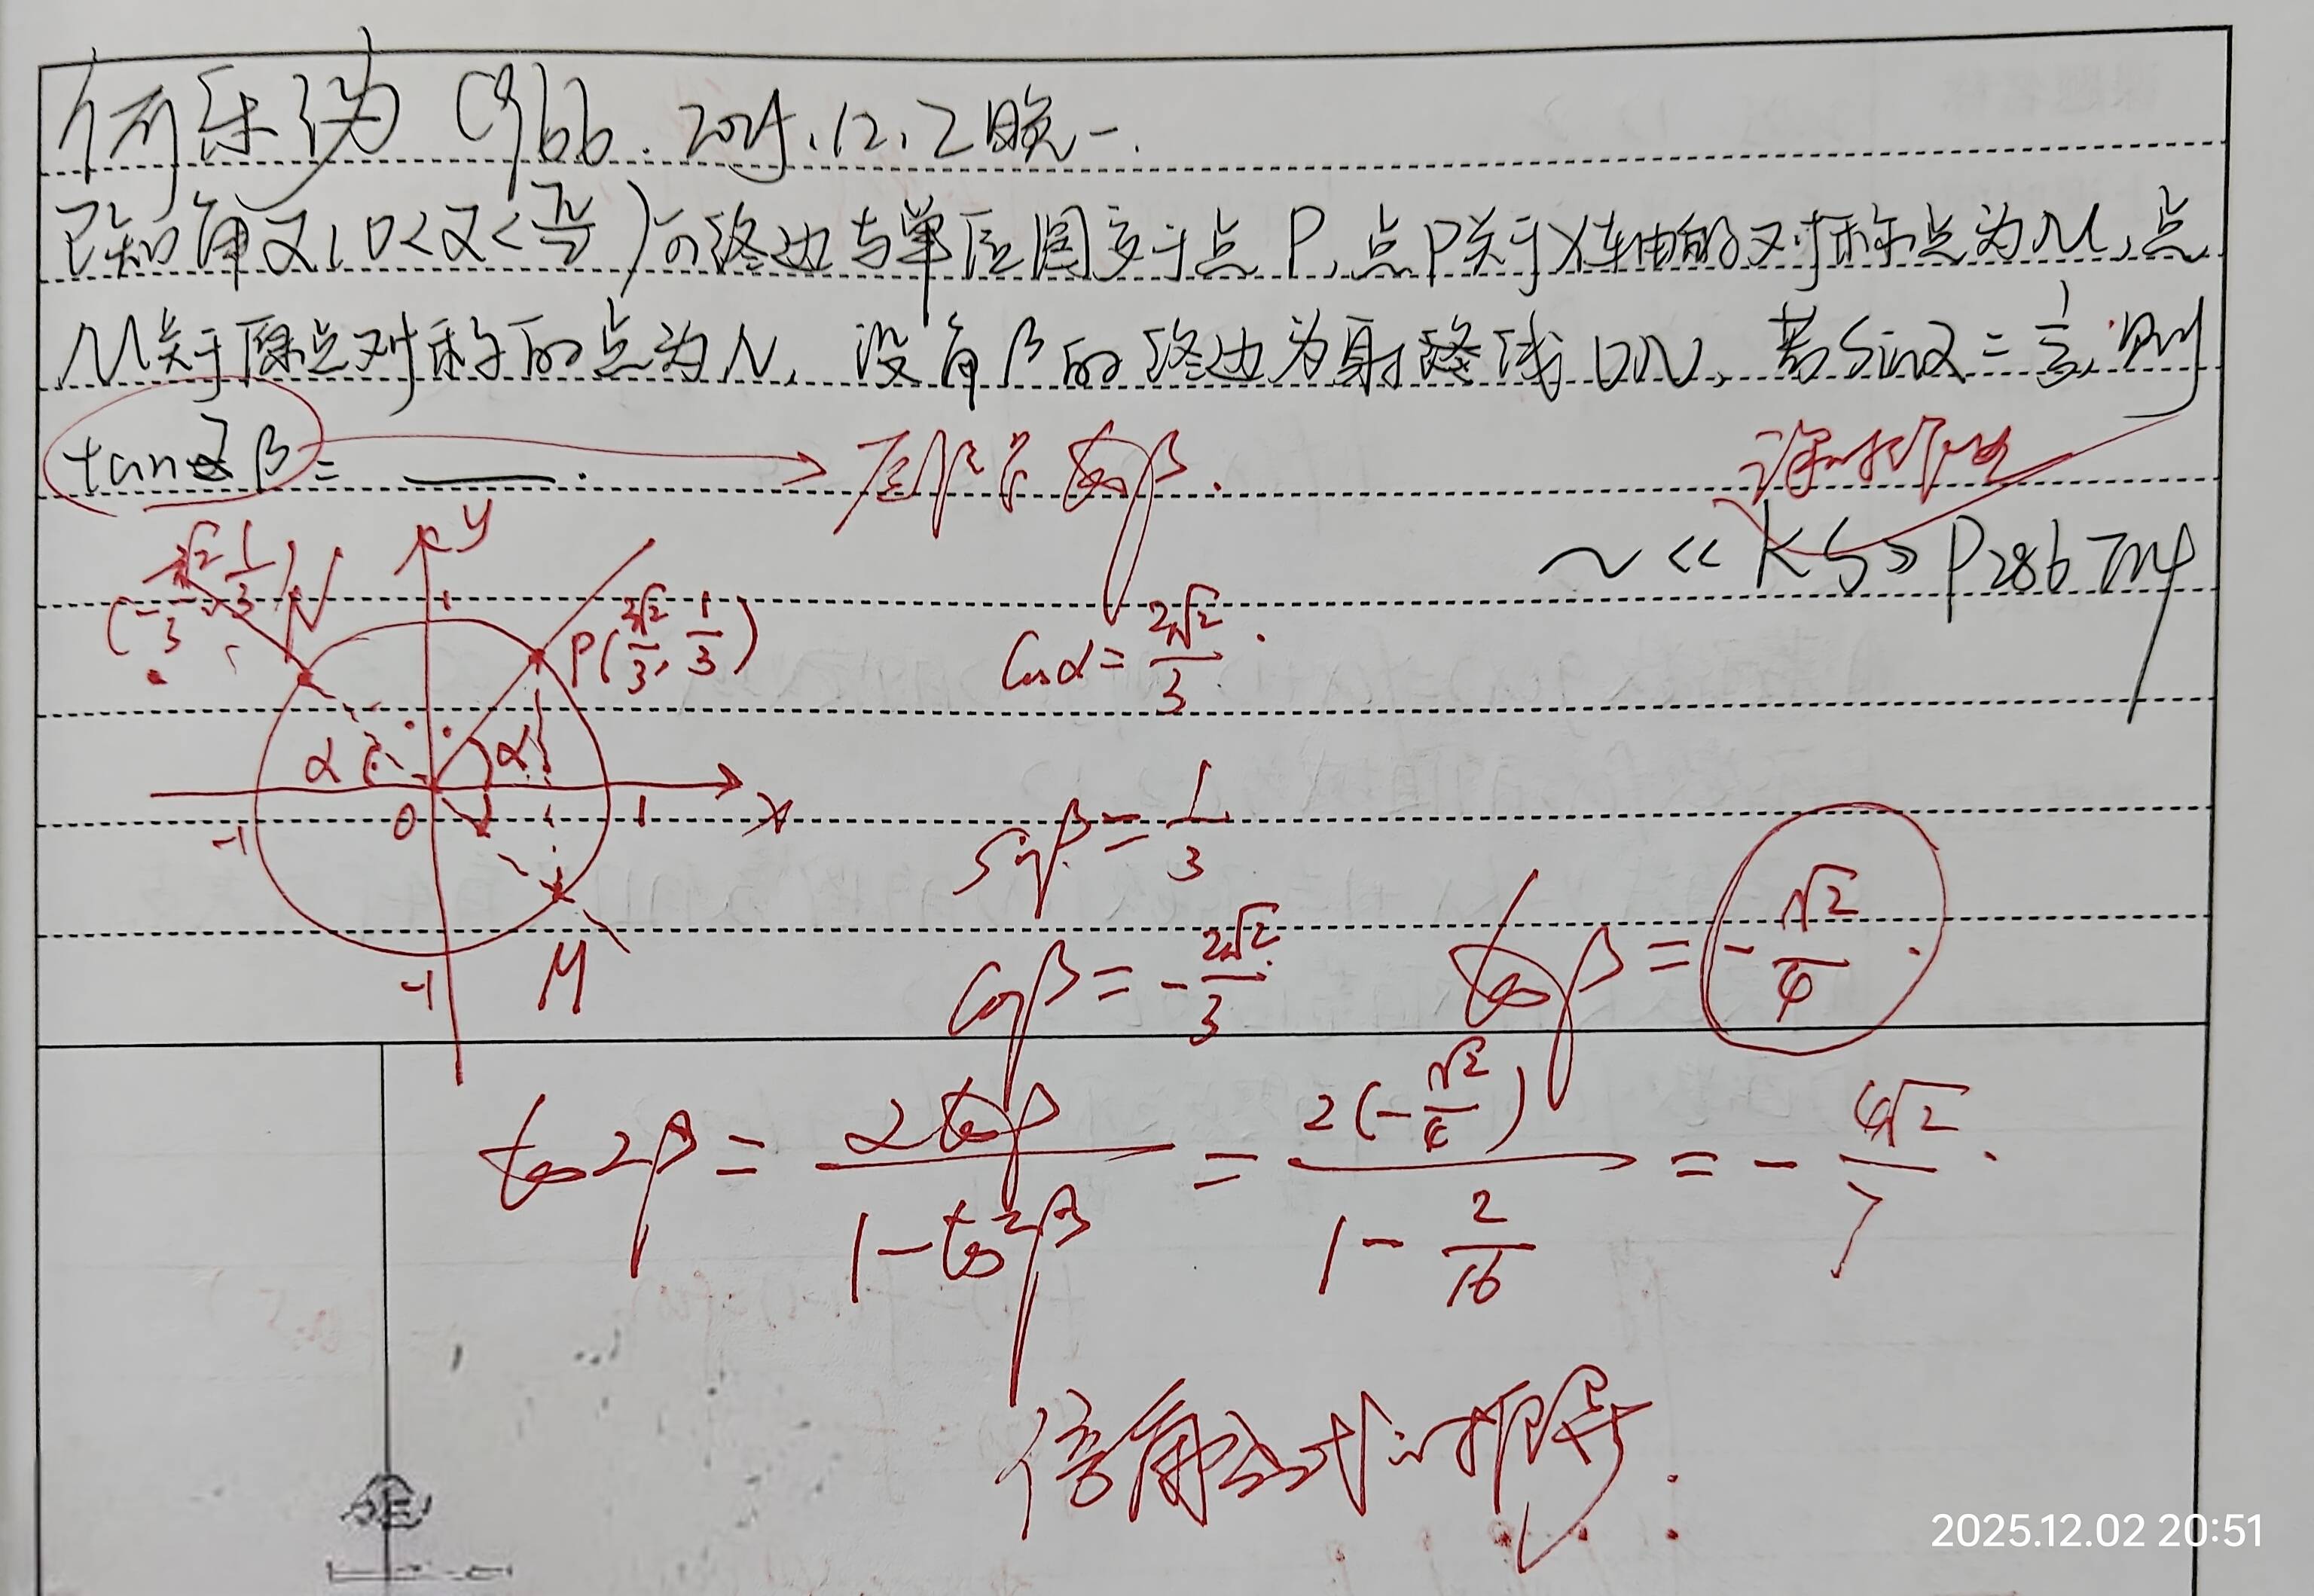 C966. 2025.12.2晚一.
已知角α(0<α<π/2)的终边与单位圆交于点P,点P关于x轴的对称点为M,点
M关于原点对称的点为N,设角β的终边为射线ON,若sinα=1/3,则
tan2β=____.
~《KS》P286 T14
y
(-2√2/3, 1/3) N
1
P(2√2/3, 1/3)
cosα=2√2/3.
α α
-1 0 1 x
sinβ=1/3
M
-1
cosβ=-2√2/3
tanβ=-√2/4.
tan2β=2tanβ/(1-tan²β)=2(-√2/4)/(1-2/16)=-4√2/7.
倍角公式的推导.
2025.12.02 20:51